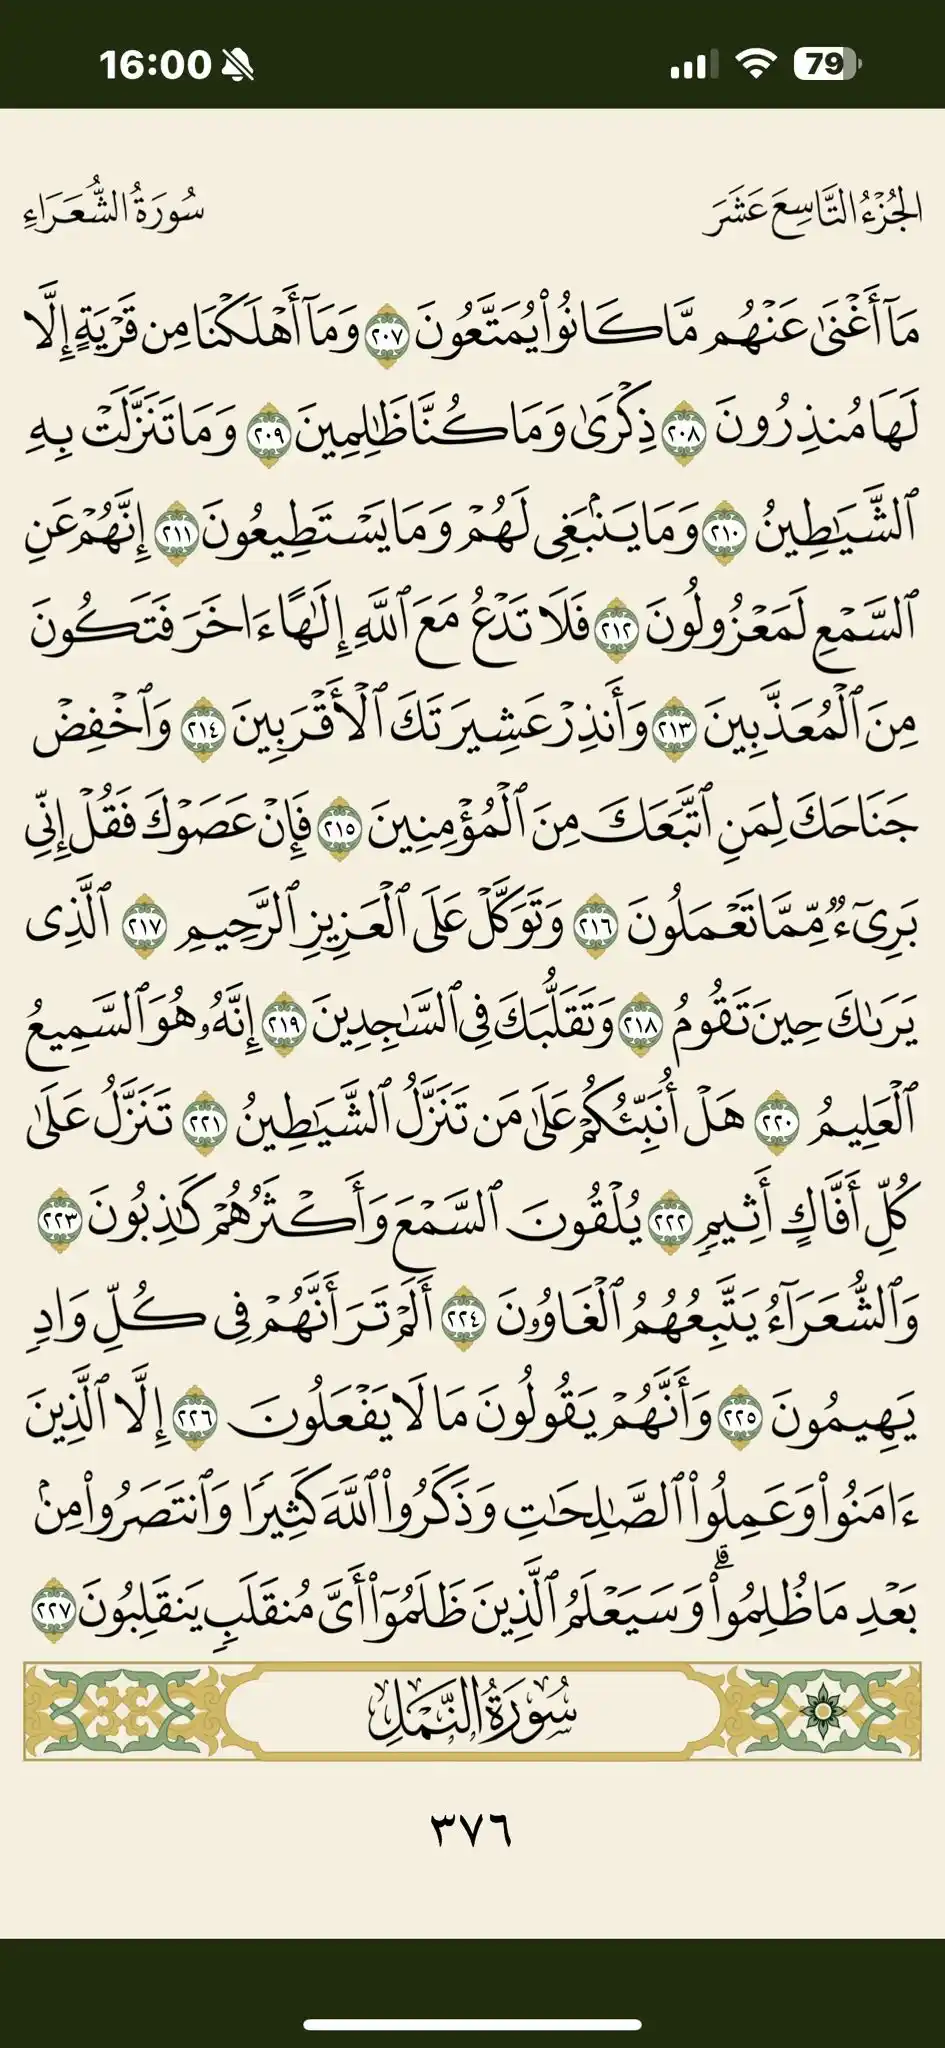 16:00
79
الجُزْءُ التَّاسِعَ عَشَرَ
سُورَةُ الشُّعَرَاءِ
مَآ أَغْنَىٰ عَنْهُم مَّا كَانُوا۟ يُمَتَّعُونَ ٢٠٧ وَمَآ أَهْلَكْنَا مِن قَرْيَةٍ إِلَّا
لَهَا مُنذِرُونَ ٢٠٨ ذِكْرَىٰ وَمَا كُنَّا ظَٰلِمِينَ ٢٠٩ وَمَا تَنَزَّلَتْ بِهِ
ٱلشَّيَٰطِينُ ٢١٠ وَمَا يَنۢبَغِى لَهُمْ وَمَا يَسْتَطِيعُونَ ٢١١ إِنَّهُمْ عَنِ
ٱلسَّمْعِ لَمَعْزُولُونَ ٢١٢ فَلَا تَدْعُ مَعَ ٱللَّهِ إِلَٰهًا ءَاخَرَ فَتَكُونَ
مِنَ ٱلْمُعَذَّبِينَ ٢١٣ وَأَنذِرْ عَشِيرَتَكَ ٱلْأَقْرَبِينَ ٢١٤ وَٱخْفِضْ
جَنَاحَكَ لِمَنِ ٱتَّبَعَكَ مِنَ ٱلْمُؤْمِنِينَ ٢١٥ فَإِنْ عَصَوْكَ فَقُلْ إِنِّى
بَرِىٓءٌ مِّمَّا تَعْمَلُونَ ٢١٦ وَتَوَكَّلْ عَلَى ٱلْعَزِيزِ ٱلرَّحِيمِ ٢١٧ ٱلَّذِى
يَرَىٰكَ حِينَ تَقُومُ ٢١٨ وَتَقَلُّبَكَ فِى ٱلسَّٰجِدِينَ ٢١٩ إِنَّهُۥ هُوَ ٱلسَّمِيعُ
ٱلْعَلِيمُ ٢٢٠ هَلْ أُنَبِّئُكُمْ عَلَىٰ مَن تَنَزَّلُ ٱلشَّيَٰطِينُ ٢٢١ تَنَزَّلُ عَلَىٰ
كُلِّ أَفَّاكٍ أَثِيمٍ ٢٢٢ يُلْقُونَ ٱلسَّمْعَ وَأَكْثَرُهُمْ كَٰذِبُونَ ٢٢٣
وَٱلشُّعَرَآءُ يَتَّبِعُهُمُ ٱلْغَاوُۥنَ ٢٢٤ أَلَمْ تَرَ أَنَّهُمْ فِى كُلِّ وَادٍ
يَهِيمُونَ ٢٢٥ وَأَنَّهُمْ يَقُولُونَ مَا لَا يَفْعَلُونَ ٢٢٦ إِلَّا ٱلَّذِينَ
ءَامَنُوا۟ وَعَمِلُوا۟ ٱلصَّٰلِحَٰتِ وَذَكَرُوا۟ ٱللَّهَ كَثِيرًا وَٱنتَصَرُوا۟ مِنۢ
بَعْدِ مَا ظُلِمُوا۟ ۗ وَسَيَعْلَمُ ٱلَّذِينَ ظَلَمُوٓا۟ أَىَّ مُنقَلَبٍ يَنقَلِبُونَ ٢٢٧
سُورَةُ النَّمْلِ
٣٧٦